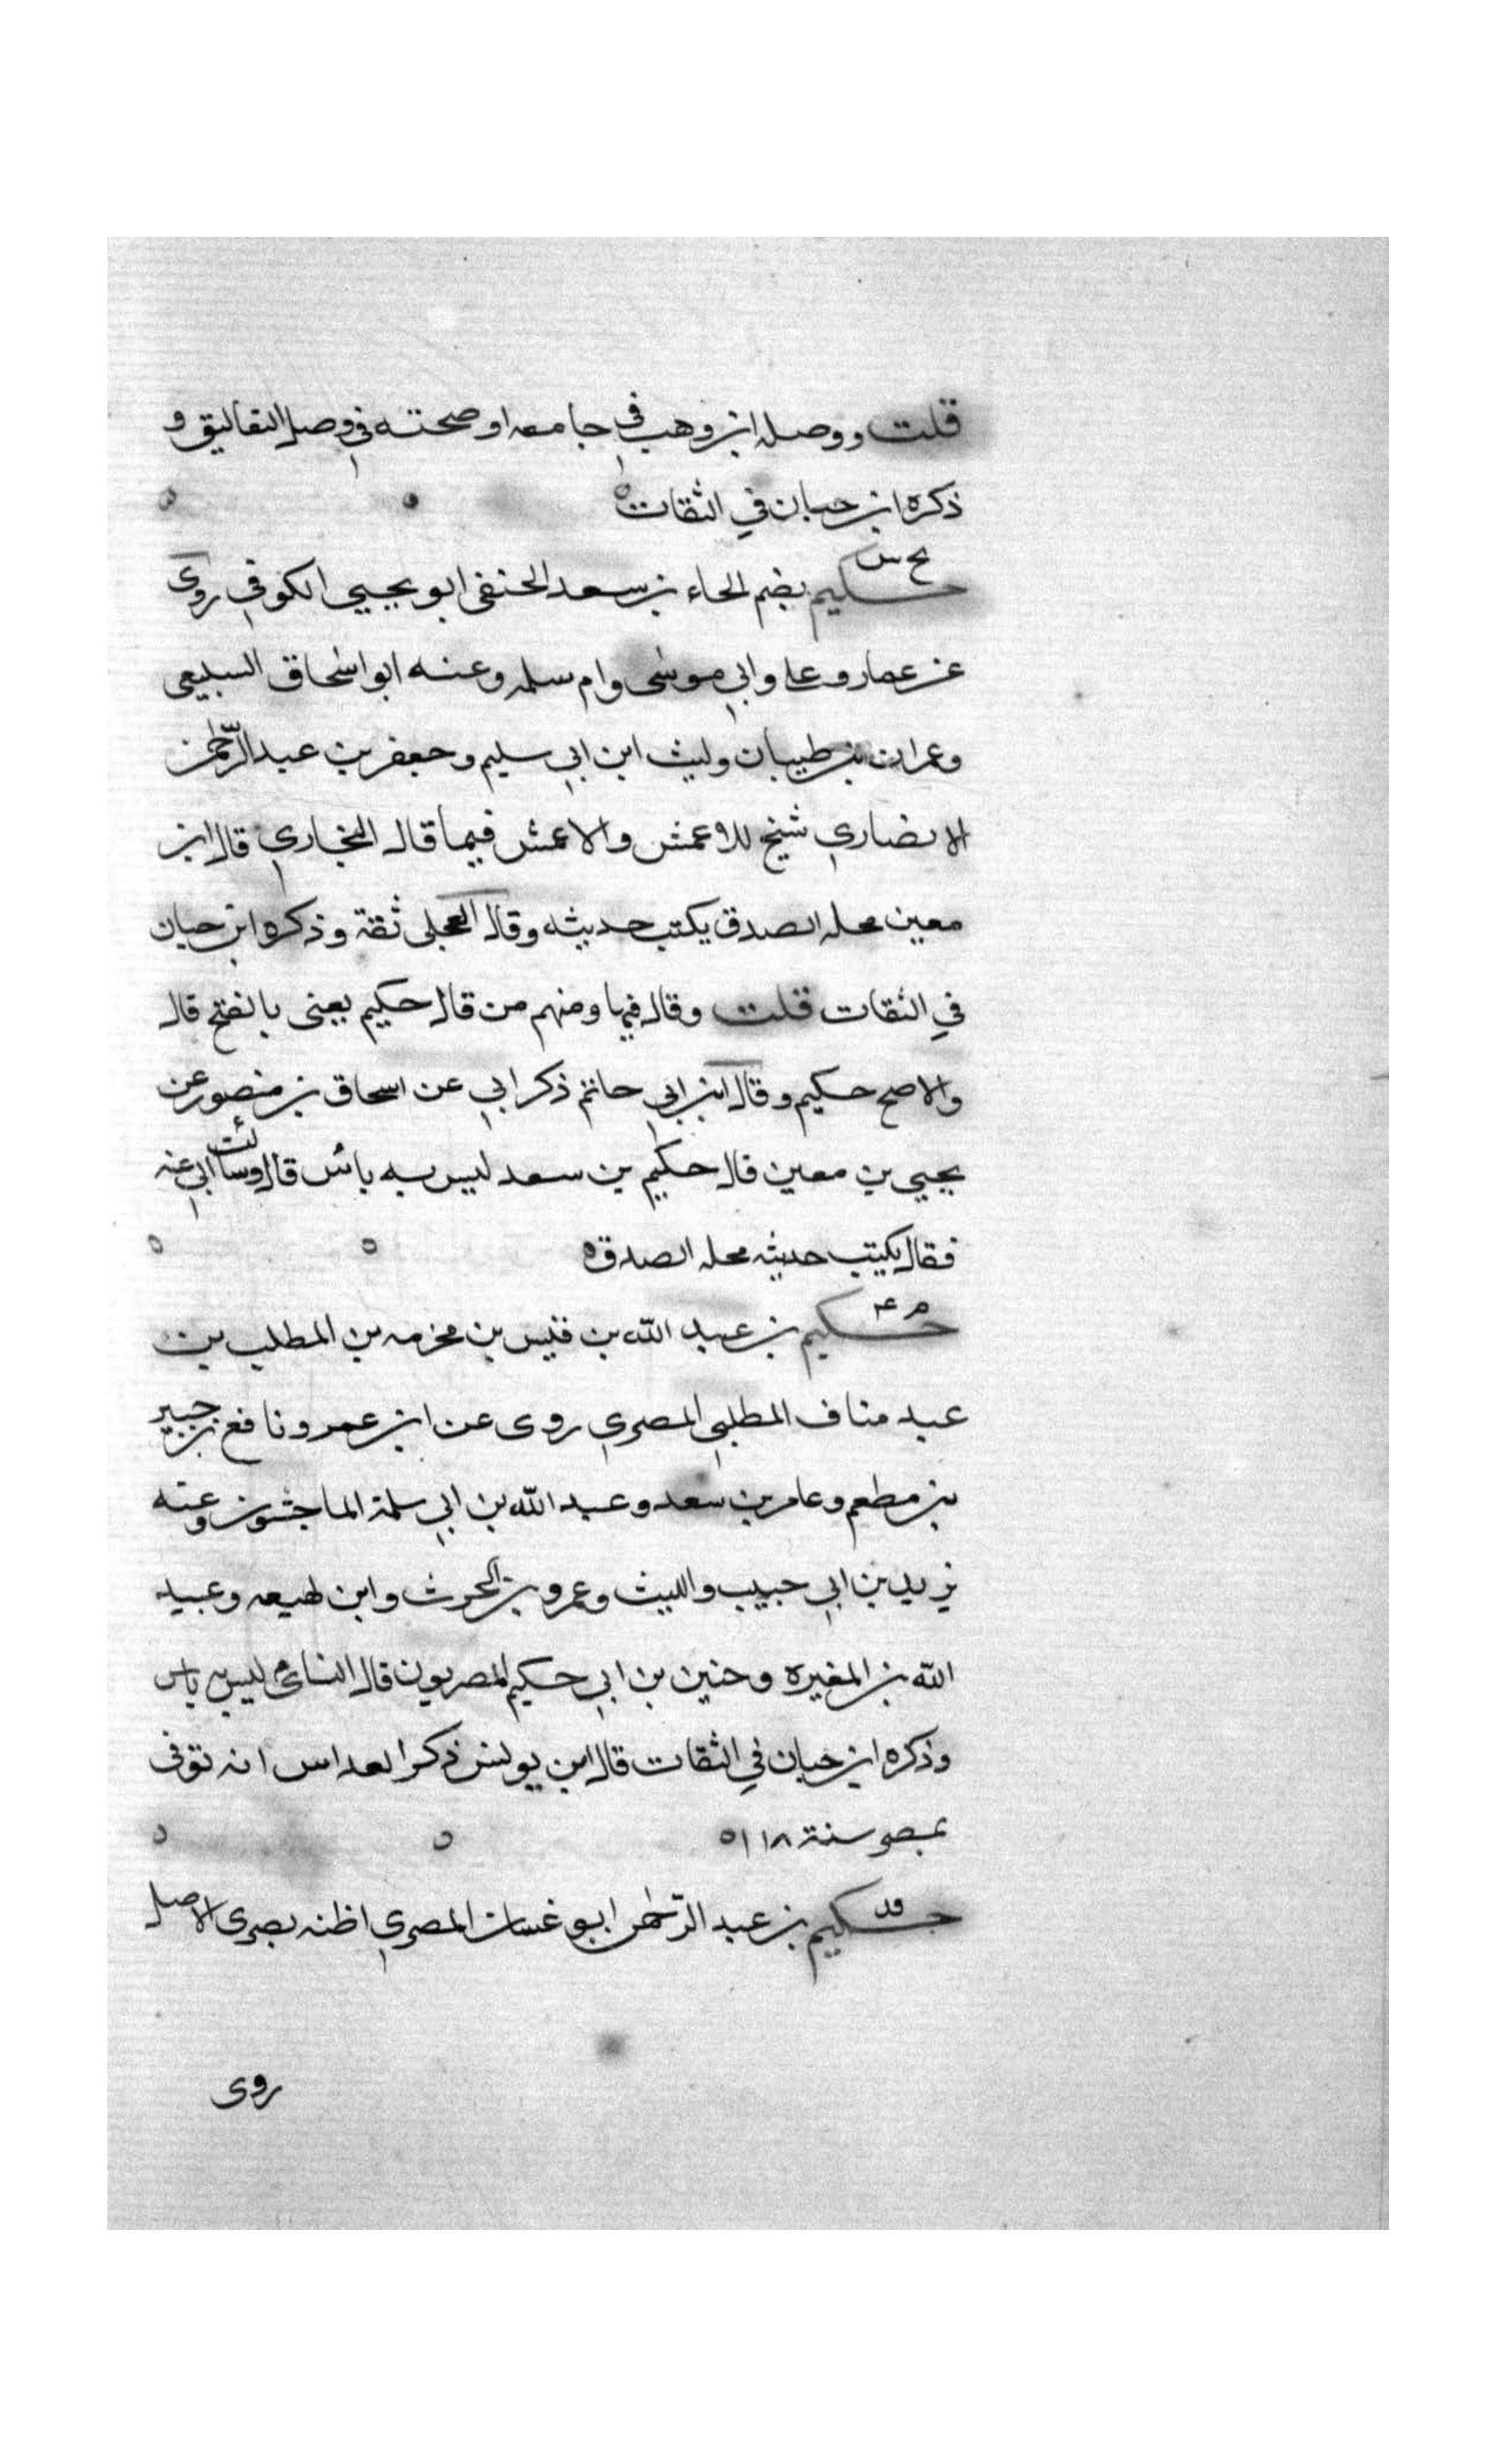 قلت ووصله ابن وهب في جامعه اوضحته في وصل التعاليق و
ذكره ابن حبان في الثقات ه
بخ س
حكيم بضم الحاء بن سعد الحنفى ابو يحيى الكوفي روى
عن عمار وعلى وابي موسى وام سلمه وعنه ابو اسحاق السبيعى
وعمران بن ظبيان وليث ابن ابي سليم وجعفر بن عبد الرحمن
الانصاري شيخ للاعمش والاعمش فيما قاله البخاري قال ابن
معين محله الصدق يكتب حديثه وقال العجلى ثقة وذكره ابن حبان
في الثقات قلت وقال فيها ومنهم من قال حكيم يعنى بالفتح قال
والاصح حكيم وقال ابن ابي حاتم ذكر ابي عن اسحاق بن منصور عن
يحيي بن معين قال حكيم بن سعد ليس به بأس قال وسألت ابي عنه
فقال يكتب حديثه محله الصدق ه
م عه
حكيم بن عبد الله بن قيس بن مخرمه بن المطلب بن
عبد مناف المطلبي المصري روى عن ابن عمر ونافع بن جبير
بن مطعم وعامر بن سعد وعبد الله بن ابي سلمة الماجشون وعنه
يزيد بن ابي حبيب والليث وعمرو بن الحرث وابن لهيعه وعبيد
الله بن المغيره وحنين بن ابي حكيم المصريون قال النسائى ليس به باس
وذكره ابن حبان في الثقات قال ابن يونس ذكر العداس انه توفى
بمصر سنة ١١٨ ه
قد
حكيم بن عبد الرحمن ابو غسان المصري اظنه بصرى الاصل
روى